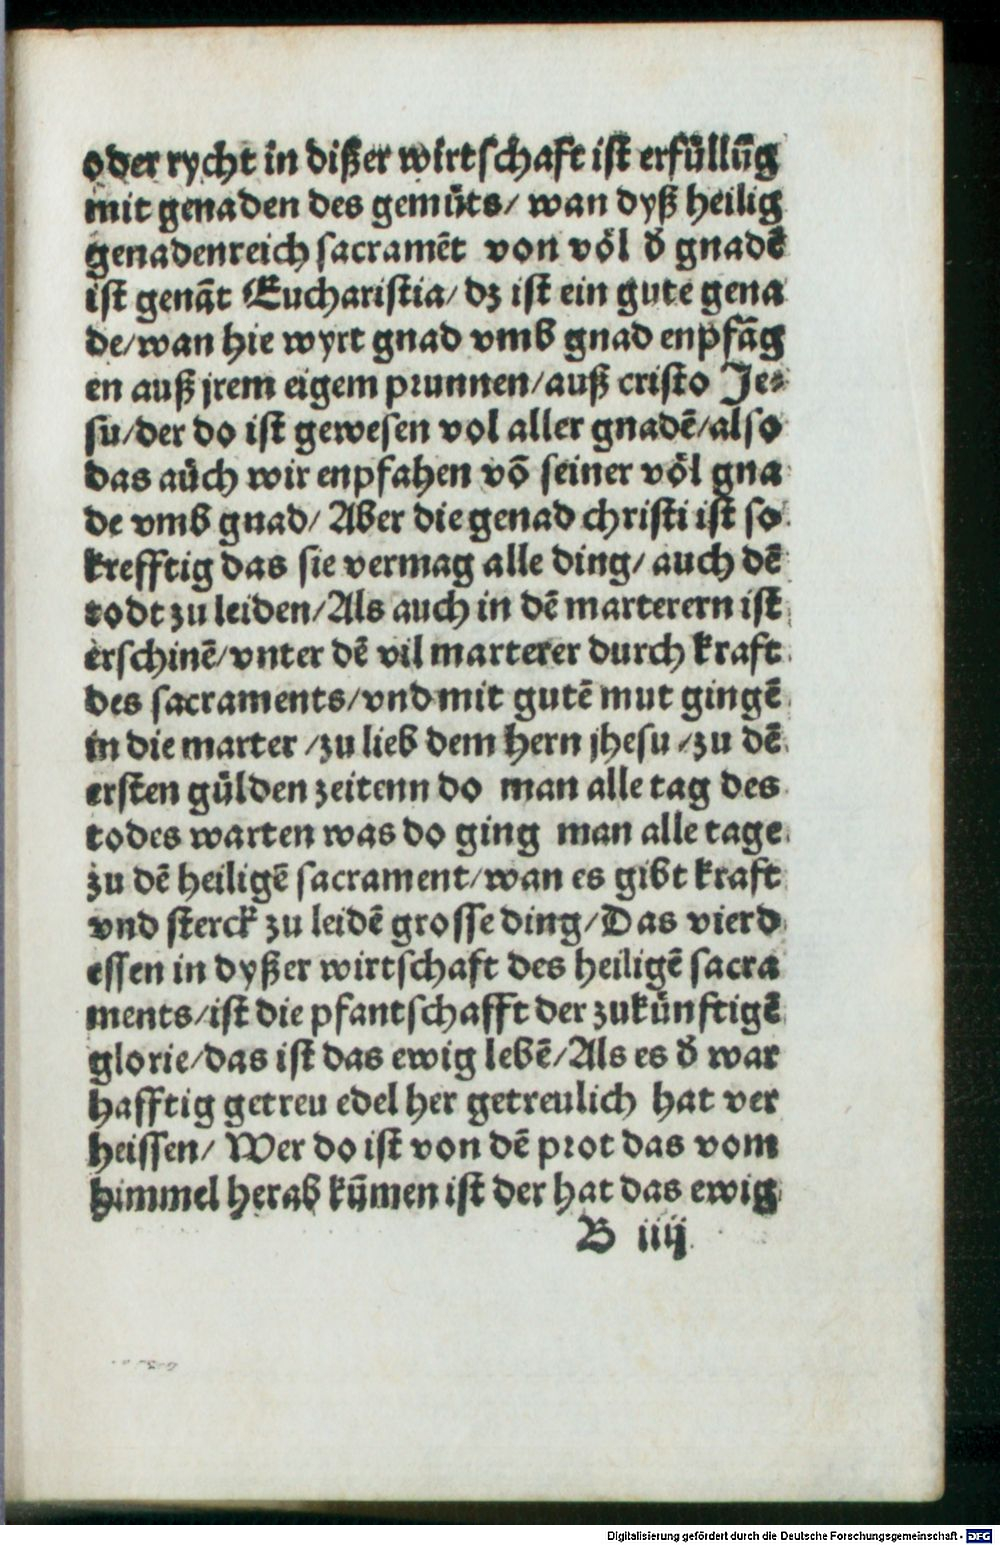 oder rycht in dißer wirtschaft ist erfüllũg
mit genaden des gemüts/ wan dyß heilig
genadenreich sacramẽt von völ d̕ gnadẽ
ist genãt Eucharistia/ dz ist ein gute gena
de/wan hie wyrt gnad vmb gnad enpfãg
en auß jrem eigem prunnen/auß cristo Je⸗
su/der do ist gewesen vol aller gnadẽ/also
das aüch wir enpfahen võ seiner völ gna
de vmb gnad/ Aber die genad christi ist so
krefftig das sie vermag alle ding/ auch dẽ
todt zu leiden/Als auch in dẽ marterern ist
erschinẽ/vnter dẽ vil marterer durch kraft
des sacraments/vnd mit gutẽ mut gingẽ
in die marter /zu lieb dem hern jhesu /zu dẽ
ersten gülden zeitenn do man alle tag des
todes warten was do ging man alle tage
zu dẽ heiligẽ sacrament/wan es gibt kraft
vnd sterck zu leidẽ grosse ding/Das vierd
essen in dyßer wirtschaft des heiligẽ sacra
ments/ist die pfantschafft der zukünftigẽ
glorie/das ist das ewig lebẽ/Als es d̕ war
hafftig getreu edel her getreulich hat ver
heissen/ Wer do ist von dẽ prot das vom
himmel herab kũmen ist der hat das ewig
B iiij
Digitalisierung gefördert durch die Deutsche Forschungsgemeinschaft - DFG